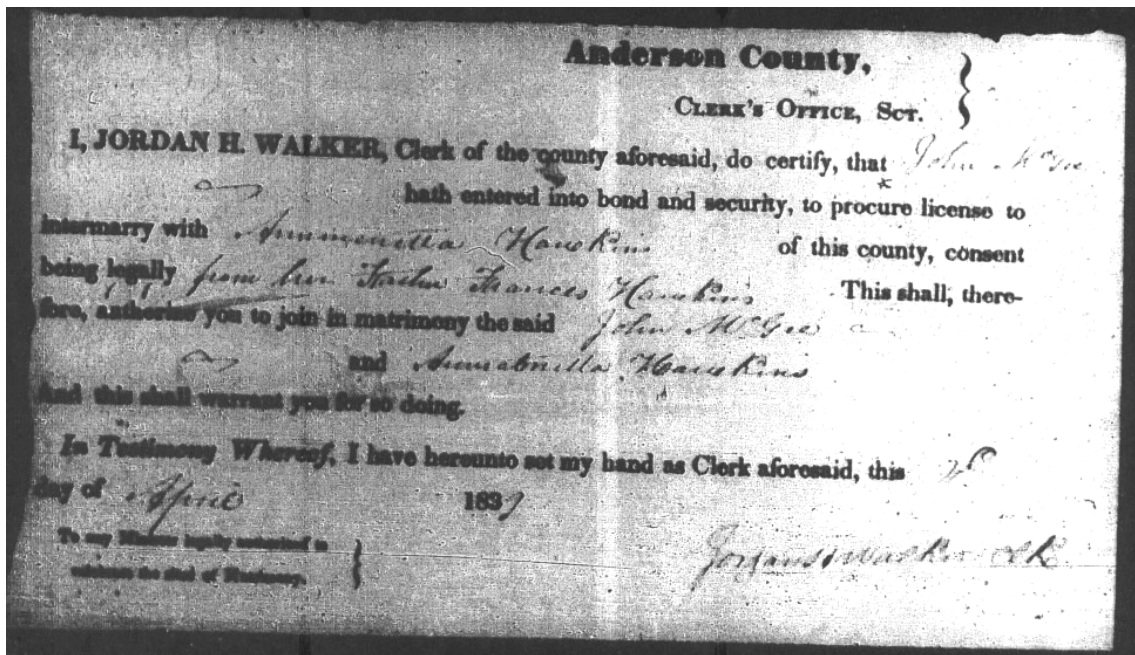 Anderson County,
CLERK'S OFFICE, SCT.
I, JORDAN H. WALKER, Clerk of the county aforesaid, do certify, that John McGee
hath entered into bond and security, to procure license to
intermarry with Hawkins of this county, consent
being legally from her Father Frances Hawkins This shall, there-
fore, authorise you to join in matrimony the said John McGee
and Hawkins
And this shall warrant you for so doing.
In Testimony Whereof, I have hereunto set my hand as Clerk aforesaid, this
day of April 1839
To any Minister legally authorized to
celebrate the rites of Matrimony.
Jordan H Walker Clk